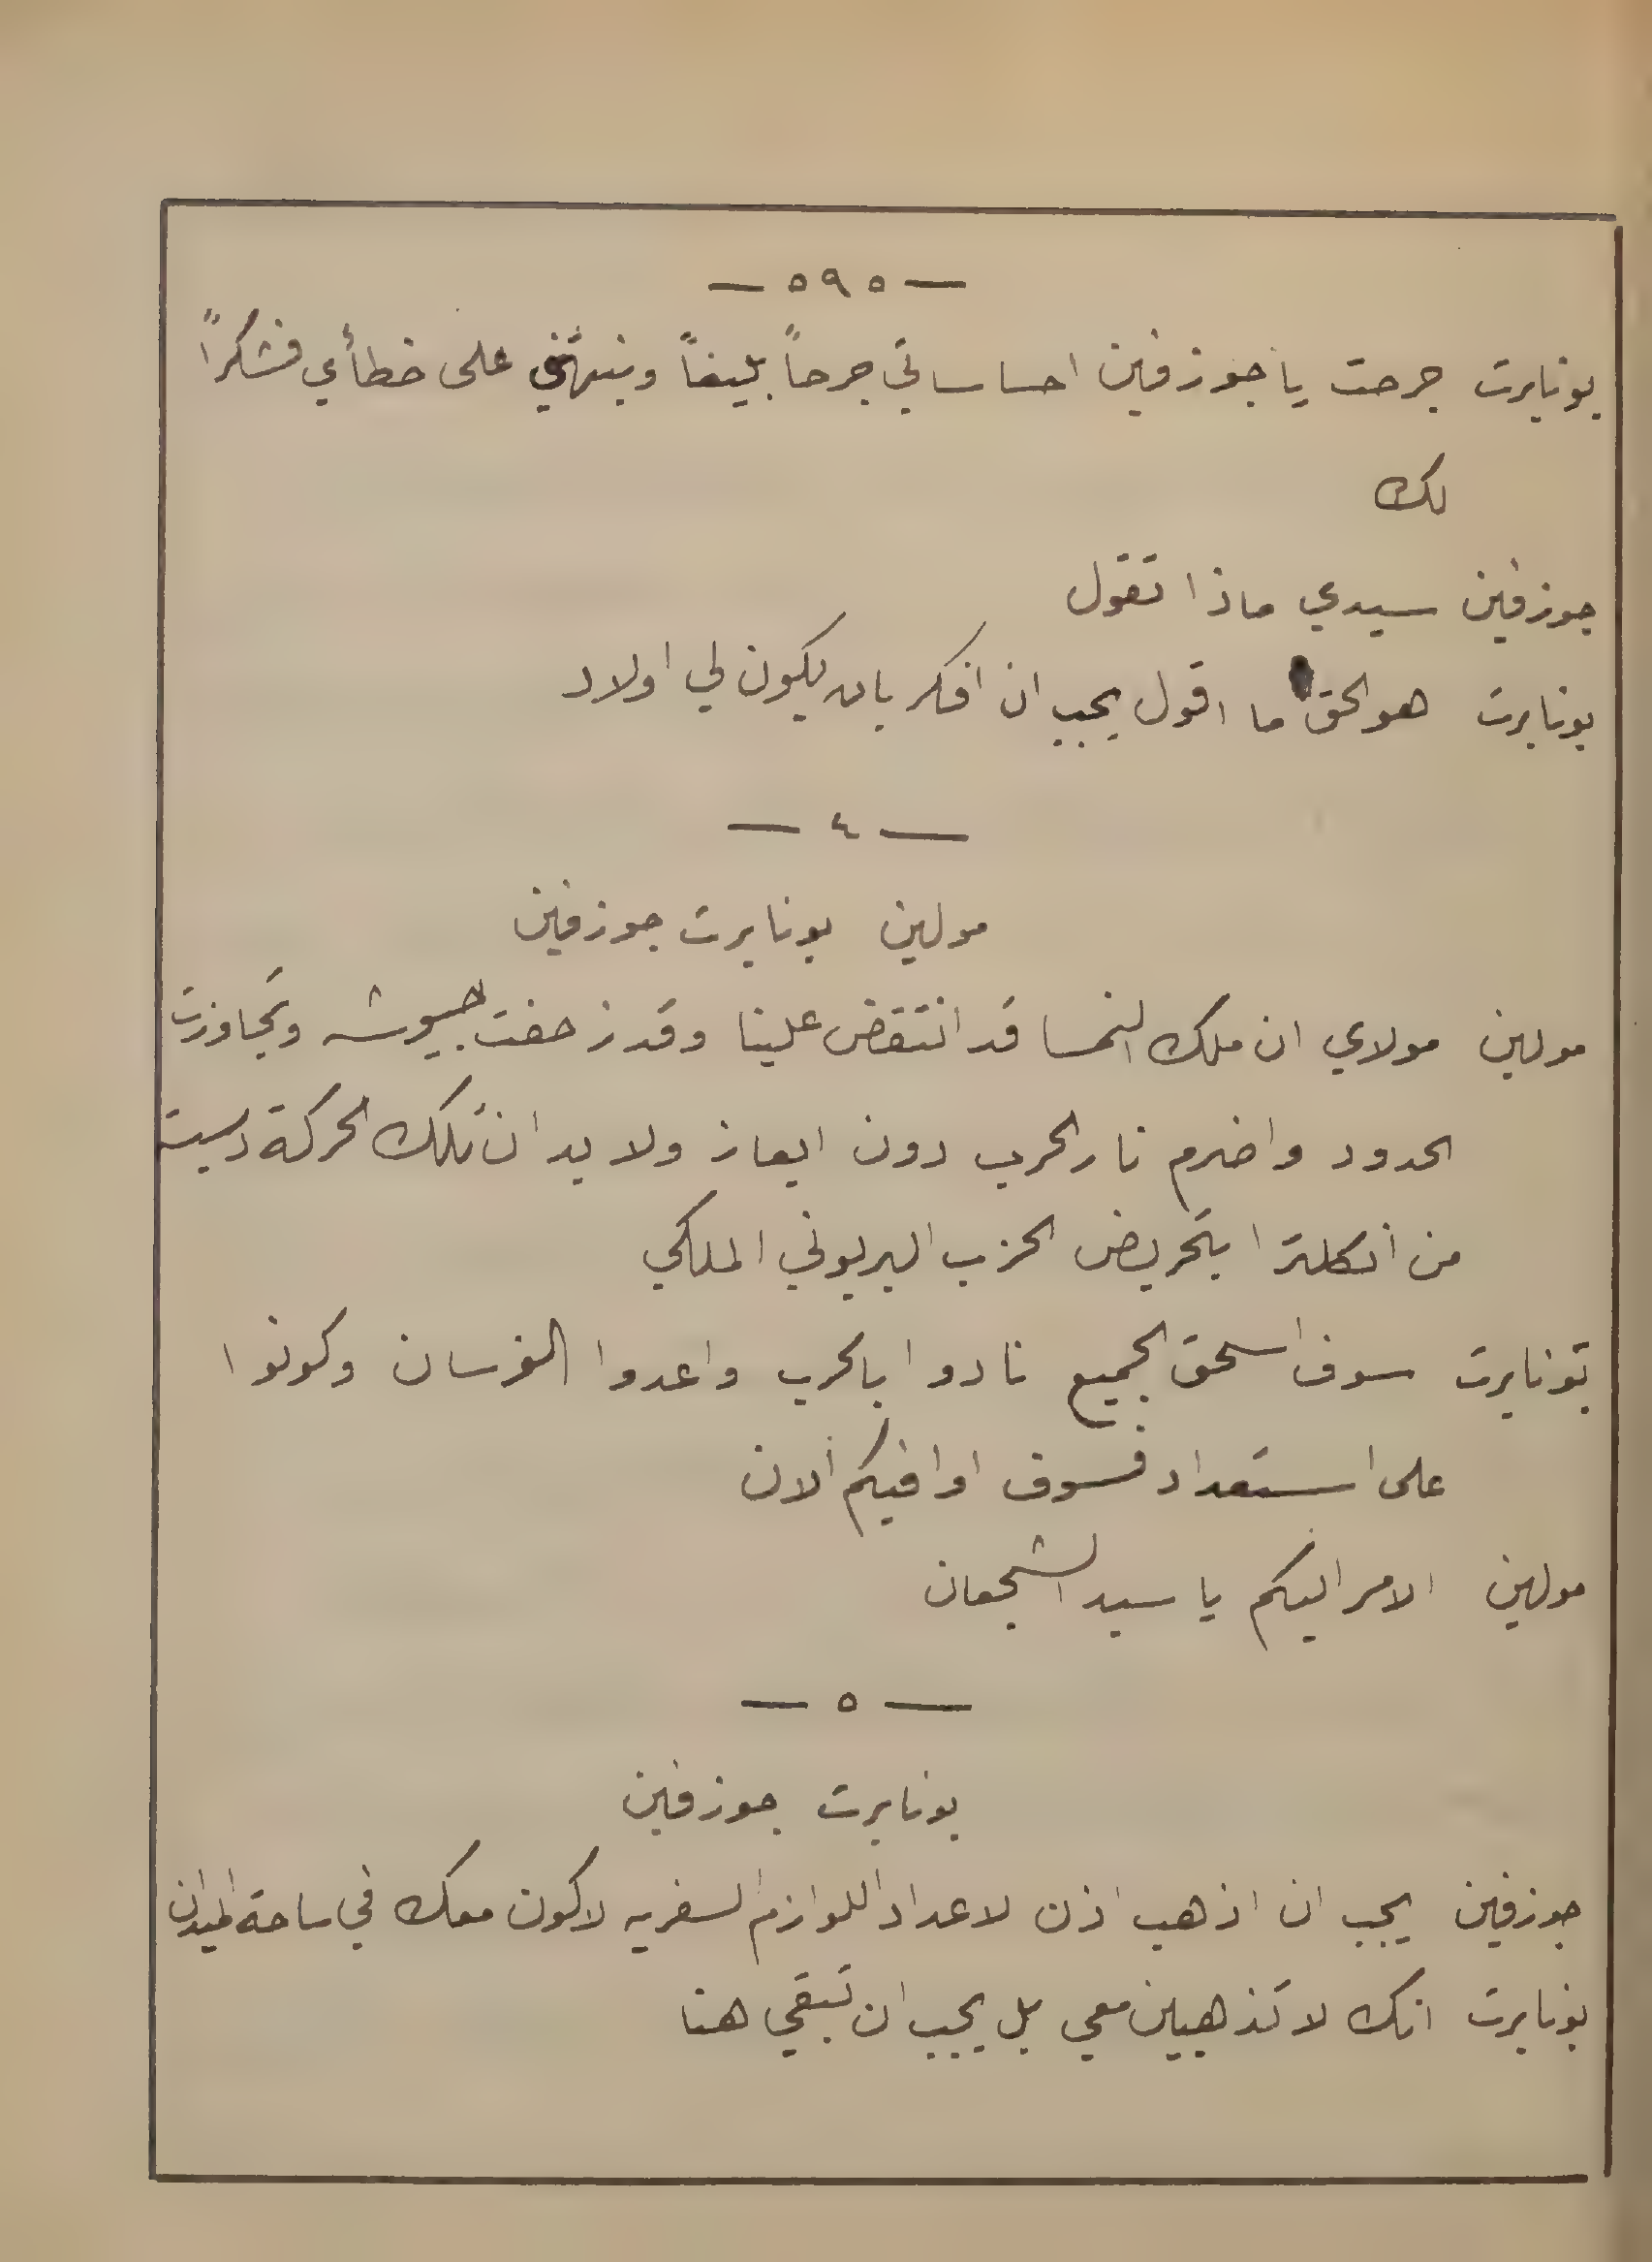 — ٥٩٥ —
بونابرت جرحت يا جوزفين احساساتي جرحاً بليغاً ونبهتني على خطأي فشكراً
لك
جوزفين سيدي ماذا تقول
بونابرت هو الحق ما اقول يجب ان افكر بان يكون لي اولاد
— ٤ —
مولين بونابرت جوزفين
مولين مولاي ان ملك النمسا قد انتقض علينا وقد زحفت جيوشه وتجاوزت
الحدود واضرم نار الحرب دون ايعاز ولا بد ان تلك الحركة دست
من انكلترا بتحريض الحزب البربوني الملكي
بونابرت سوف اسحق الجميع نادوا بالحرب واعدوا الفرسان وكونوا
على استعداد فسوف اوافيكم الان
مولين الامر اليكم يا سيد الشجعان
— ٥ —
بونابرت جوزفين
جوزفين يجب ان اذهب اذن لاعداد اللوازم السفريه لاكون معك في ساحة الميدان
بونابرت انك لا تذهبين معي بل يجب ان تبقي هنا